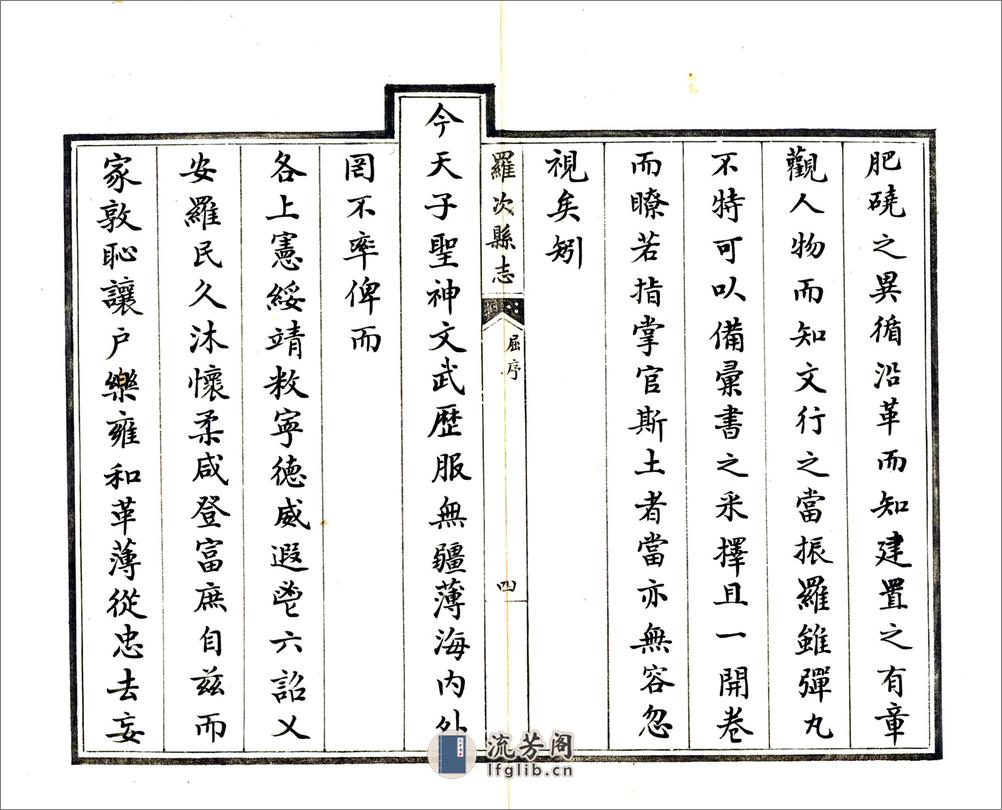 肥磽之異循沿革而知建置之有章
觀人物而知文行之當振羅雖彈丸
不特可以備彙書之采擇且一開卷
而瞭若指掌官斯土者當亦無容忽
視矣矧
羅次縣志
屈序
四
今天子聖神文武歷服無疆薄海内外
罔不率俾而
各上憲綏靖敉寧德威遐鬯六詔乂
安羅民久沐懷柔咸登富庶自兹而
家敦恥讓户樂雍和革薄從忠去妄
流芳阁
lfglib.cn